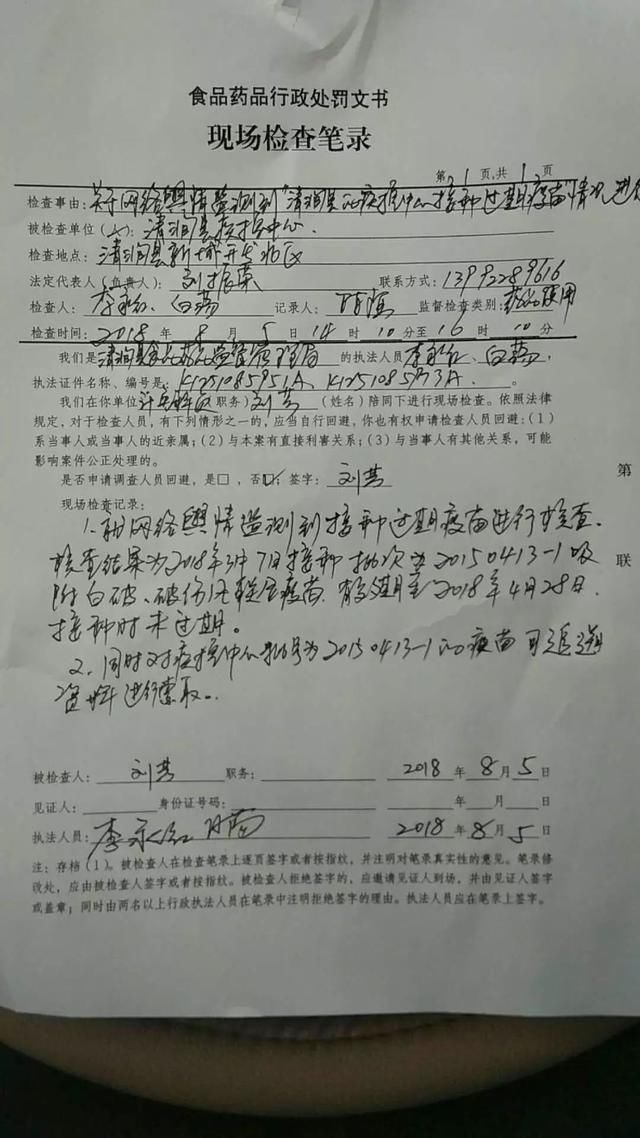 食品药品行政处罚文书
现场检查笔录
第 1 页,共 1 页
检查事由:关于网络舆情监测到"清涧县疾控中心接种过期疫苗"情况进行
被检查单位(人):清涧县疾控中心.
检查地点:清涧县新城开发北区
法定代表人(负责人):刘振荣 联系方式:13992289616
检查人: 白茹 记录人: 监督检查类别:药品使用
检查时间:2018年8月5日14时10分至16时10分
我们是清涧县食品药品监督管理局的执法人员 、白茹,
执法证件名称、编号是:K1251085951A、K12510859 3A.。
我们在你单位 职务)刘芸(姓名)陪同下进行现场检查。依照法律
规定,对于检查人员,有下列情形之一的,应当自行回避,你也有权申请检查人员回避:(1)
系当事人或当事人的近亲属;(2)与本案有直接利害关系;(3)与当事人有其他关系,可能
影响案件公正处理的。
是否申请调查人员回避,是□,否☑,签字:刘芸
第
现场检查记录:
1.对网络舆情监测到接种过期疫苗进行核查.
核查结果为2018年3月7日接种批次为20150413-1吸
联
附白破、破伤风联合疫苗.有效期至2018年4月28日.
接种时未过期。
2.同时对疾控中心批号为20150413-1的疫苗可追溯
资料进行索取..
被检查人: 刘芸 职务: 2018年8月5日
见证人: 身份证号码: 年 月 日
执法人员: 白茹 2018年8月5日
注:存档(1)。被检查人在检查笔录上逐页签字或者按指纹,并注明对笔录真实性的意见。笔录修
改处,应由被检查人签字或者按指纹。被检查人拒绝签字的,应邀请见证人到场,并由见证人签字
或盖章;同时由两名以上行政执法人员在笔录中注明拒绝签字的理由。执法人员应在笔录上签字。